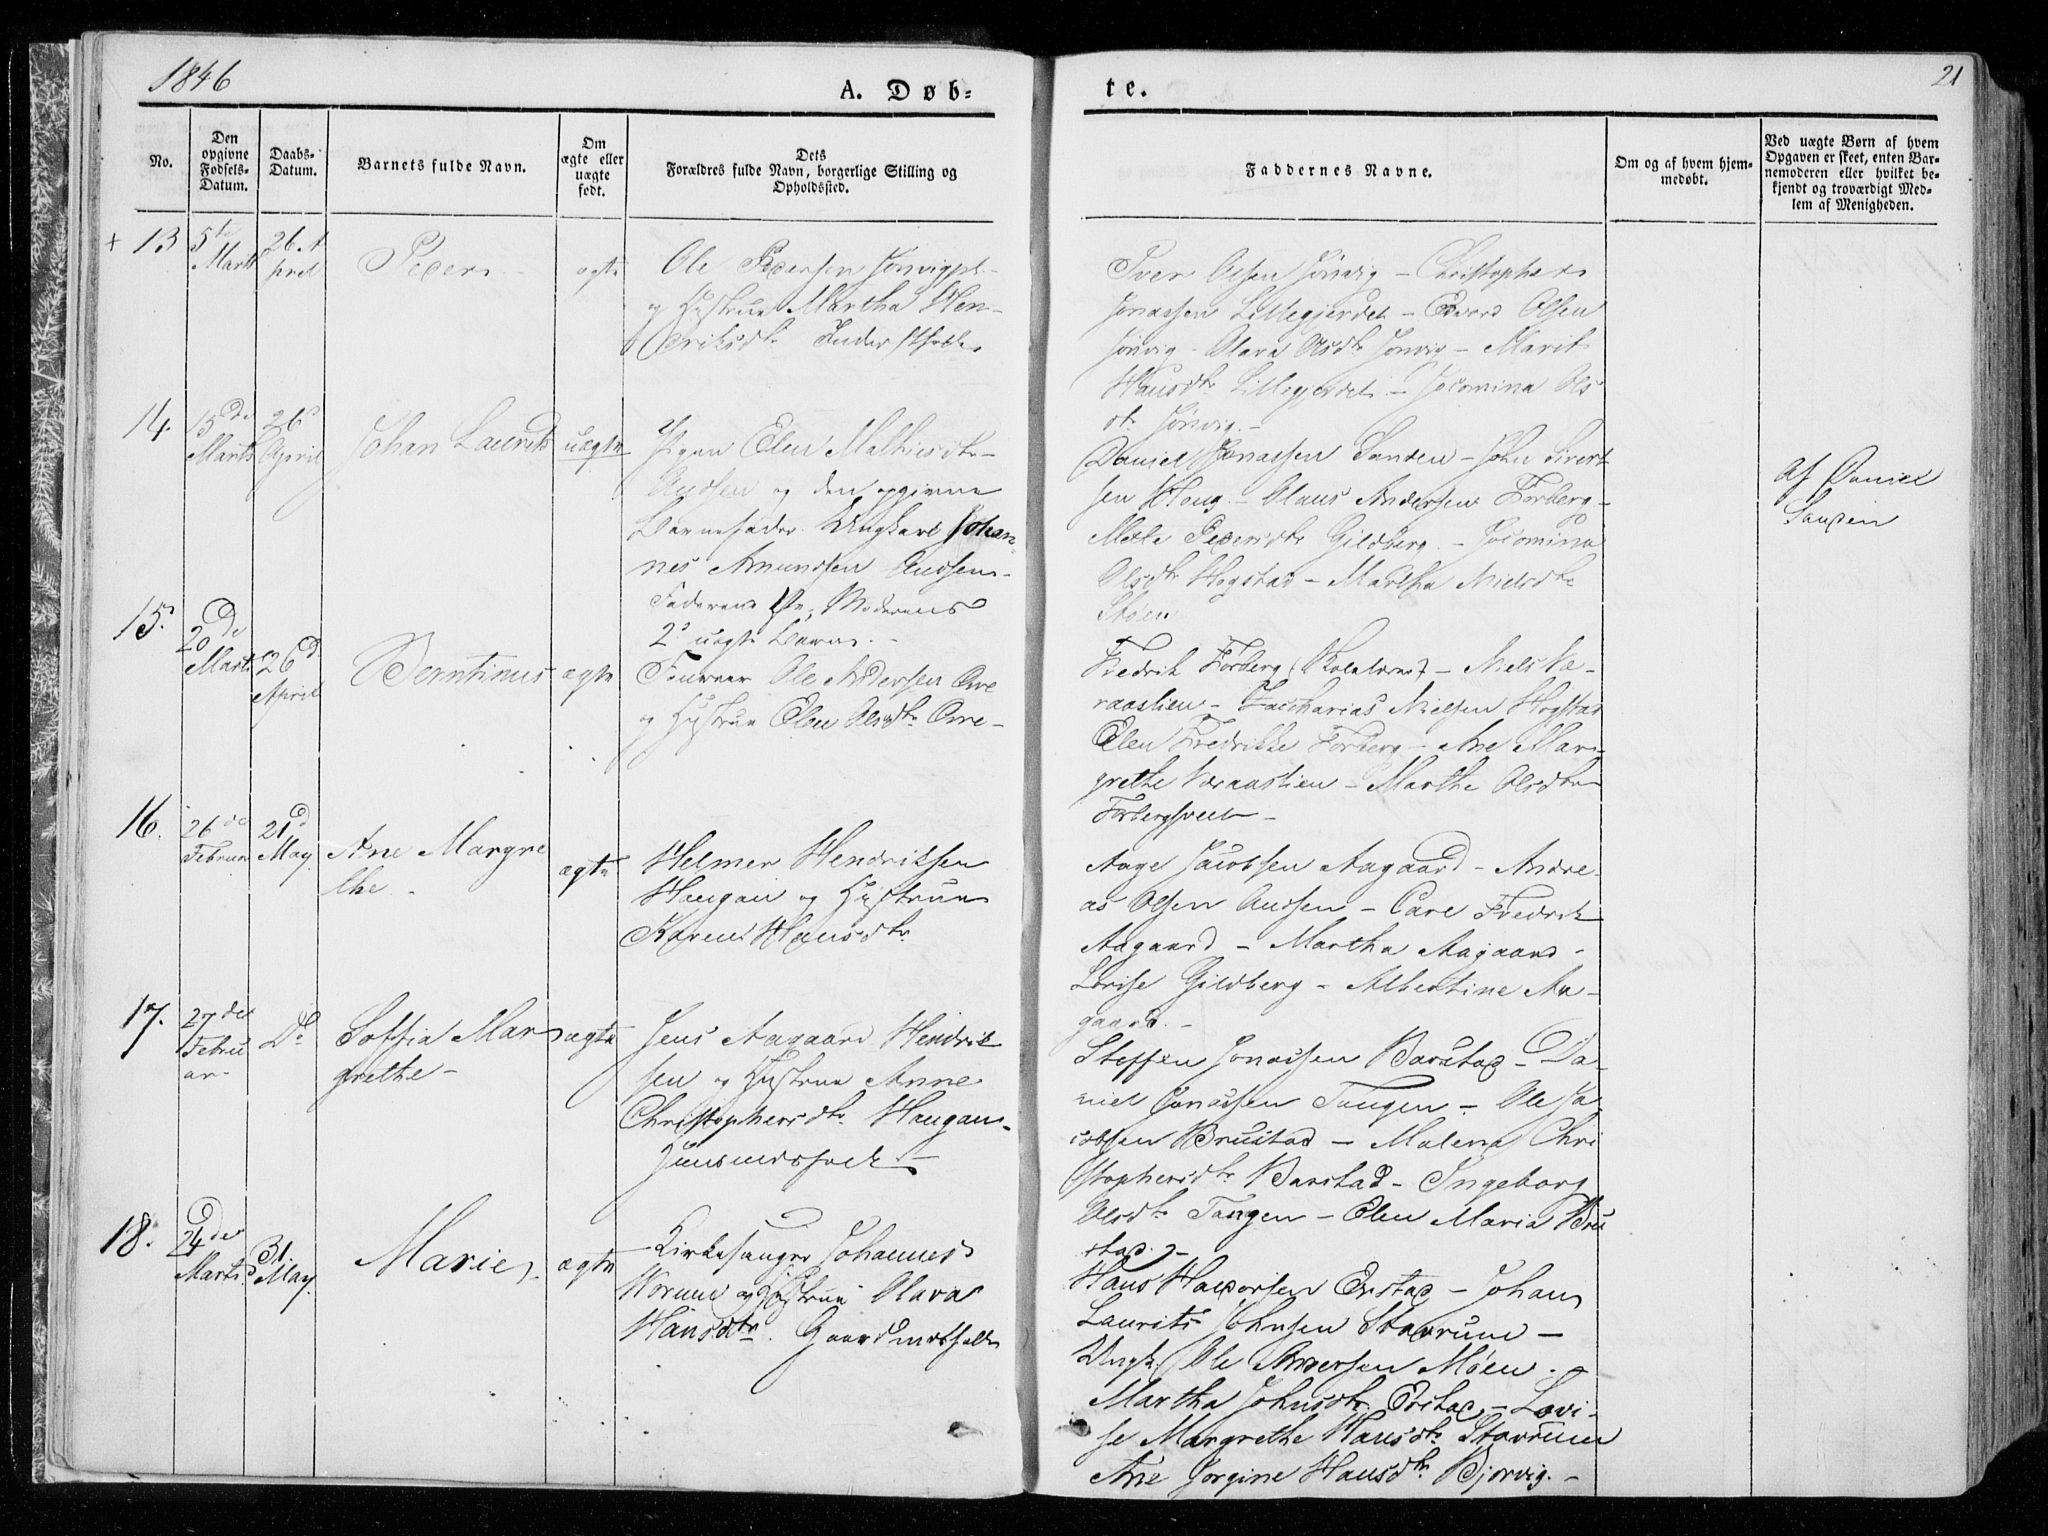 1846
A. Døb=
te.
21
No.
Den opgivne Fødsels-Datum.
Daabs-Datum.
Barnets fulde Navn.
Om ægte eller uægte født.
Dets Forældres fulde Navn, borgerlige Stilling og Opholdssted.
Faddernes Navne.
Om og af hvem hjem-
medøbt.
Ved uægte Børn af hvem
Opgaven er skeet, enten Bar-
nemoderen eller hvilket be-
kjendt og troværdigt Med-
lem af Menigheden.
+ 13
5te Marts
26 April
Peder
ægte
Ole Pedersen
og Hustrue Martha Hen-
driksdtr
Iver Olsen Jønvig - Christopher
Jonassen Lillegjerdet - Edvard Olsen
Jønvig - Olava Olsdtr Jønvig - Marit
Hansdtr Lillegjerdet - Jocomina Ols
dtr Jønvig. -
14.
15de Marts
26d April
Johan Laurits
uægte
Pigen Elen Mathiesdtr
Audsen og den opgivne
Barnefader Ungkarl Johan-
nes Amundsen Audsen.
Faderens 1ste, Moderens
2d uægte Barn. -
Daniel Jonassen Sanden - John Sivert
sen Houg - Olaus Andersen Forberg -
Mette Pedersdtr Gildberg - Jocomina
Olsdtr Hogstad - Martha Nielsdtr
Støen
af Daniel
Sanden
15.
20de Marts
26d April
Berntinus
ægte
Ole Andersen Ove
og Hustrue Elen Olsdtr Ove -
Fredrik Forberg - Niels Væ-
raaslien - Zacharias Nielsen Hogstad
Elen Fredrikke Forberg - Ane Mar-
grethe Væraaslien - Marthe Olsdtr
16.
26de Februar
21d May
Ane Margre
the -
ægte
Helmer Hendriksen
Haugan og Hustrue
Karen Hansdtr
Aage Jacobsen Aagaard - Andre-
as Olsen Audsen - Carl Fredrik
Aagaard - Martha Aagaard -
Lovise Gildberg - Albertine Aa-
gaard. -
17.
27de Febru
ar
Do
Soffia Mar
grethe -
ægte
Jens Aagaard Hendrik
sen og Hustrue Anne
Christophersdtr Haugan
Huusmandsfolk -
Steffen Jonassen Barstad - Da-
niel Jonassen Tangen - Ole Ja-
cobsen Brustad - Malena Chri
stophersdtr Barstad - Ingeborg
Olsdtr Tangen - Elen Maria Bru
stad. -
18.
24de Marts
31. May
Marie
ægte
Kirkesanger Johannes
Worum og Hustrue Olava
Hansdtr. Gaardmandsfolk
Hans Haldorsen Erstad - Johan
Laurits Johnsen Stavrum -
Ungk. Ole Andersen Møen -
Martha Johnsdtr Erstad - Lovi-
se Margrethe Hansdtr Stavrum
Ane Jorgine Hansdtr Bjørvig. -